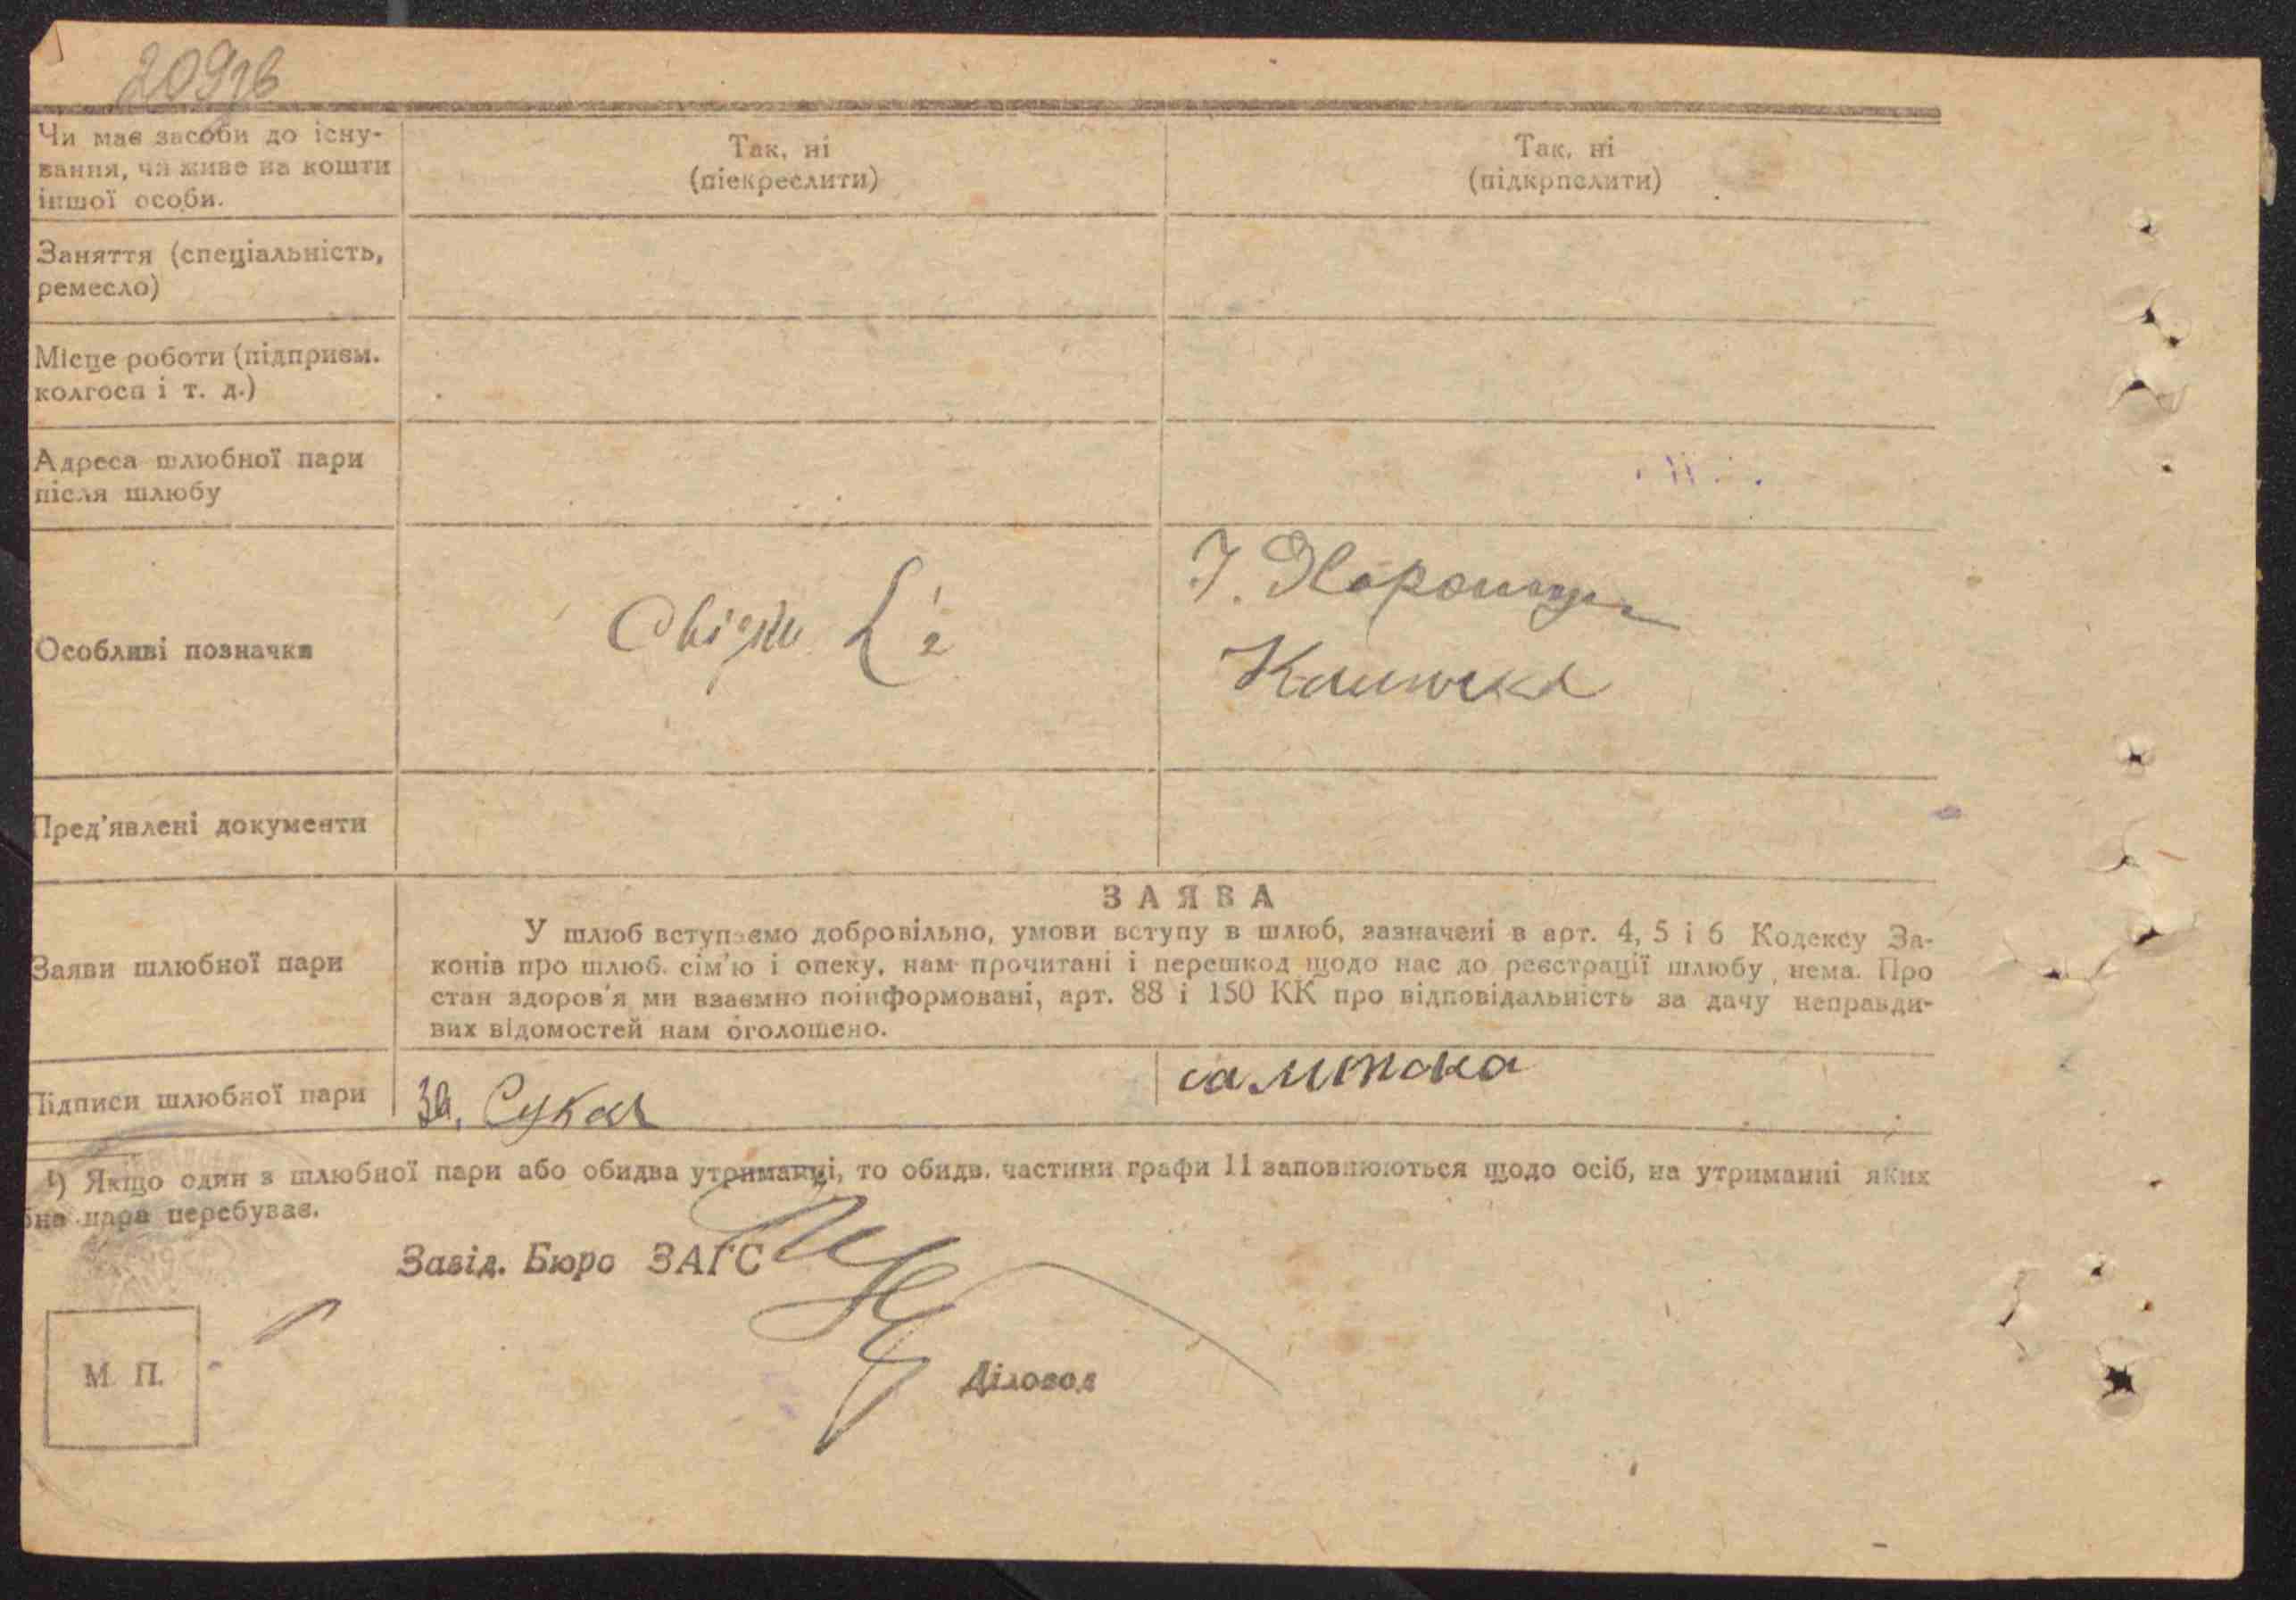 209зв
Чи має засоби до існу-
вання, чи живе на кошти
іншої особи.
Так, ні
(піекреслити)
Так, ні
(підкрпслити)
Заняття (спеціальність,
ремесло)
Місце роботи (підприєм.
колгосп і т. д.)
Адреса шлюбної пари
після шлюбу
Особливі позначки
Свідки 1
2
Пред'явлені документи
Заяви шлюбної пари
ЗАЯВА
У шлюб вступаємо добровільно, умови вступу в шлюб, зазначені в арт. 4, 5 і 6 Кодексу За-
конів про шлюб. сім'ю і опеку, нам прочитані і перешкод щодо нас до реєстрації шлюбу нема. Про
стан здоров'я ми взаємно поінформовані, арт. 88 і 150 КК про відповідальність за дачу неправди-
вих відомостей нам оголошено.
Підписи шлюбної пари
За. Сукач
¹) Якщо один з шлюбної пари або обидва утриманці, то обидв. частини графи 11 заповнюються щодо осіб, на утриманні яких
бна пара перебуває.
Завід. Бюро ЗАГС
М. П.
Діловод